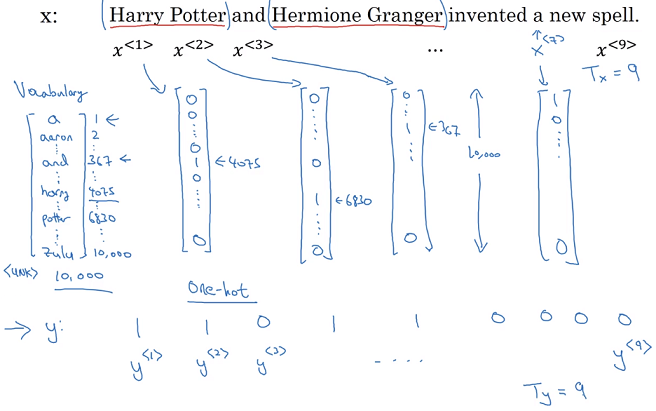 x: Harry Potter and Hermione Granger invented a new spell.
x<1> x<2> x<3> ... x<7> x<9>
Tx = 9
Vocabulary
a 1 ←
aaron 2
⋮ ⋮
and 367 ←
⋮ ⋮
harry 4075
⋮ ⋮
potter 6830
⋮ ⋮
zulu 10,000
<UNK> 10,000
0 0 ⋮ 0 1 0 ⋮ 0 ←4075
0 ⋮ 0 1 ⋮ 0 ←6830
0 ⋮ 1 ⋮ 0 ←367
10,000
1 0 ⋮ 0
One-hot
→ y: 1 1 0 1 1 0 0 0 0
y<1> y<2> y<3> .... y<9>
Ty = 9